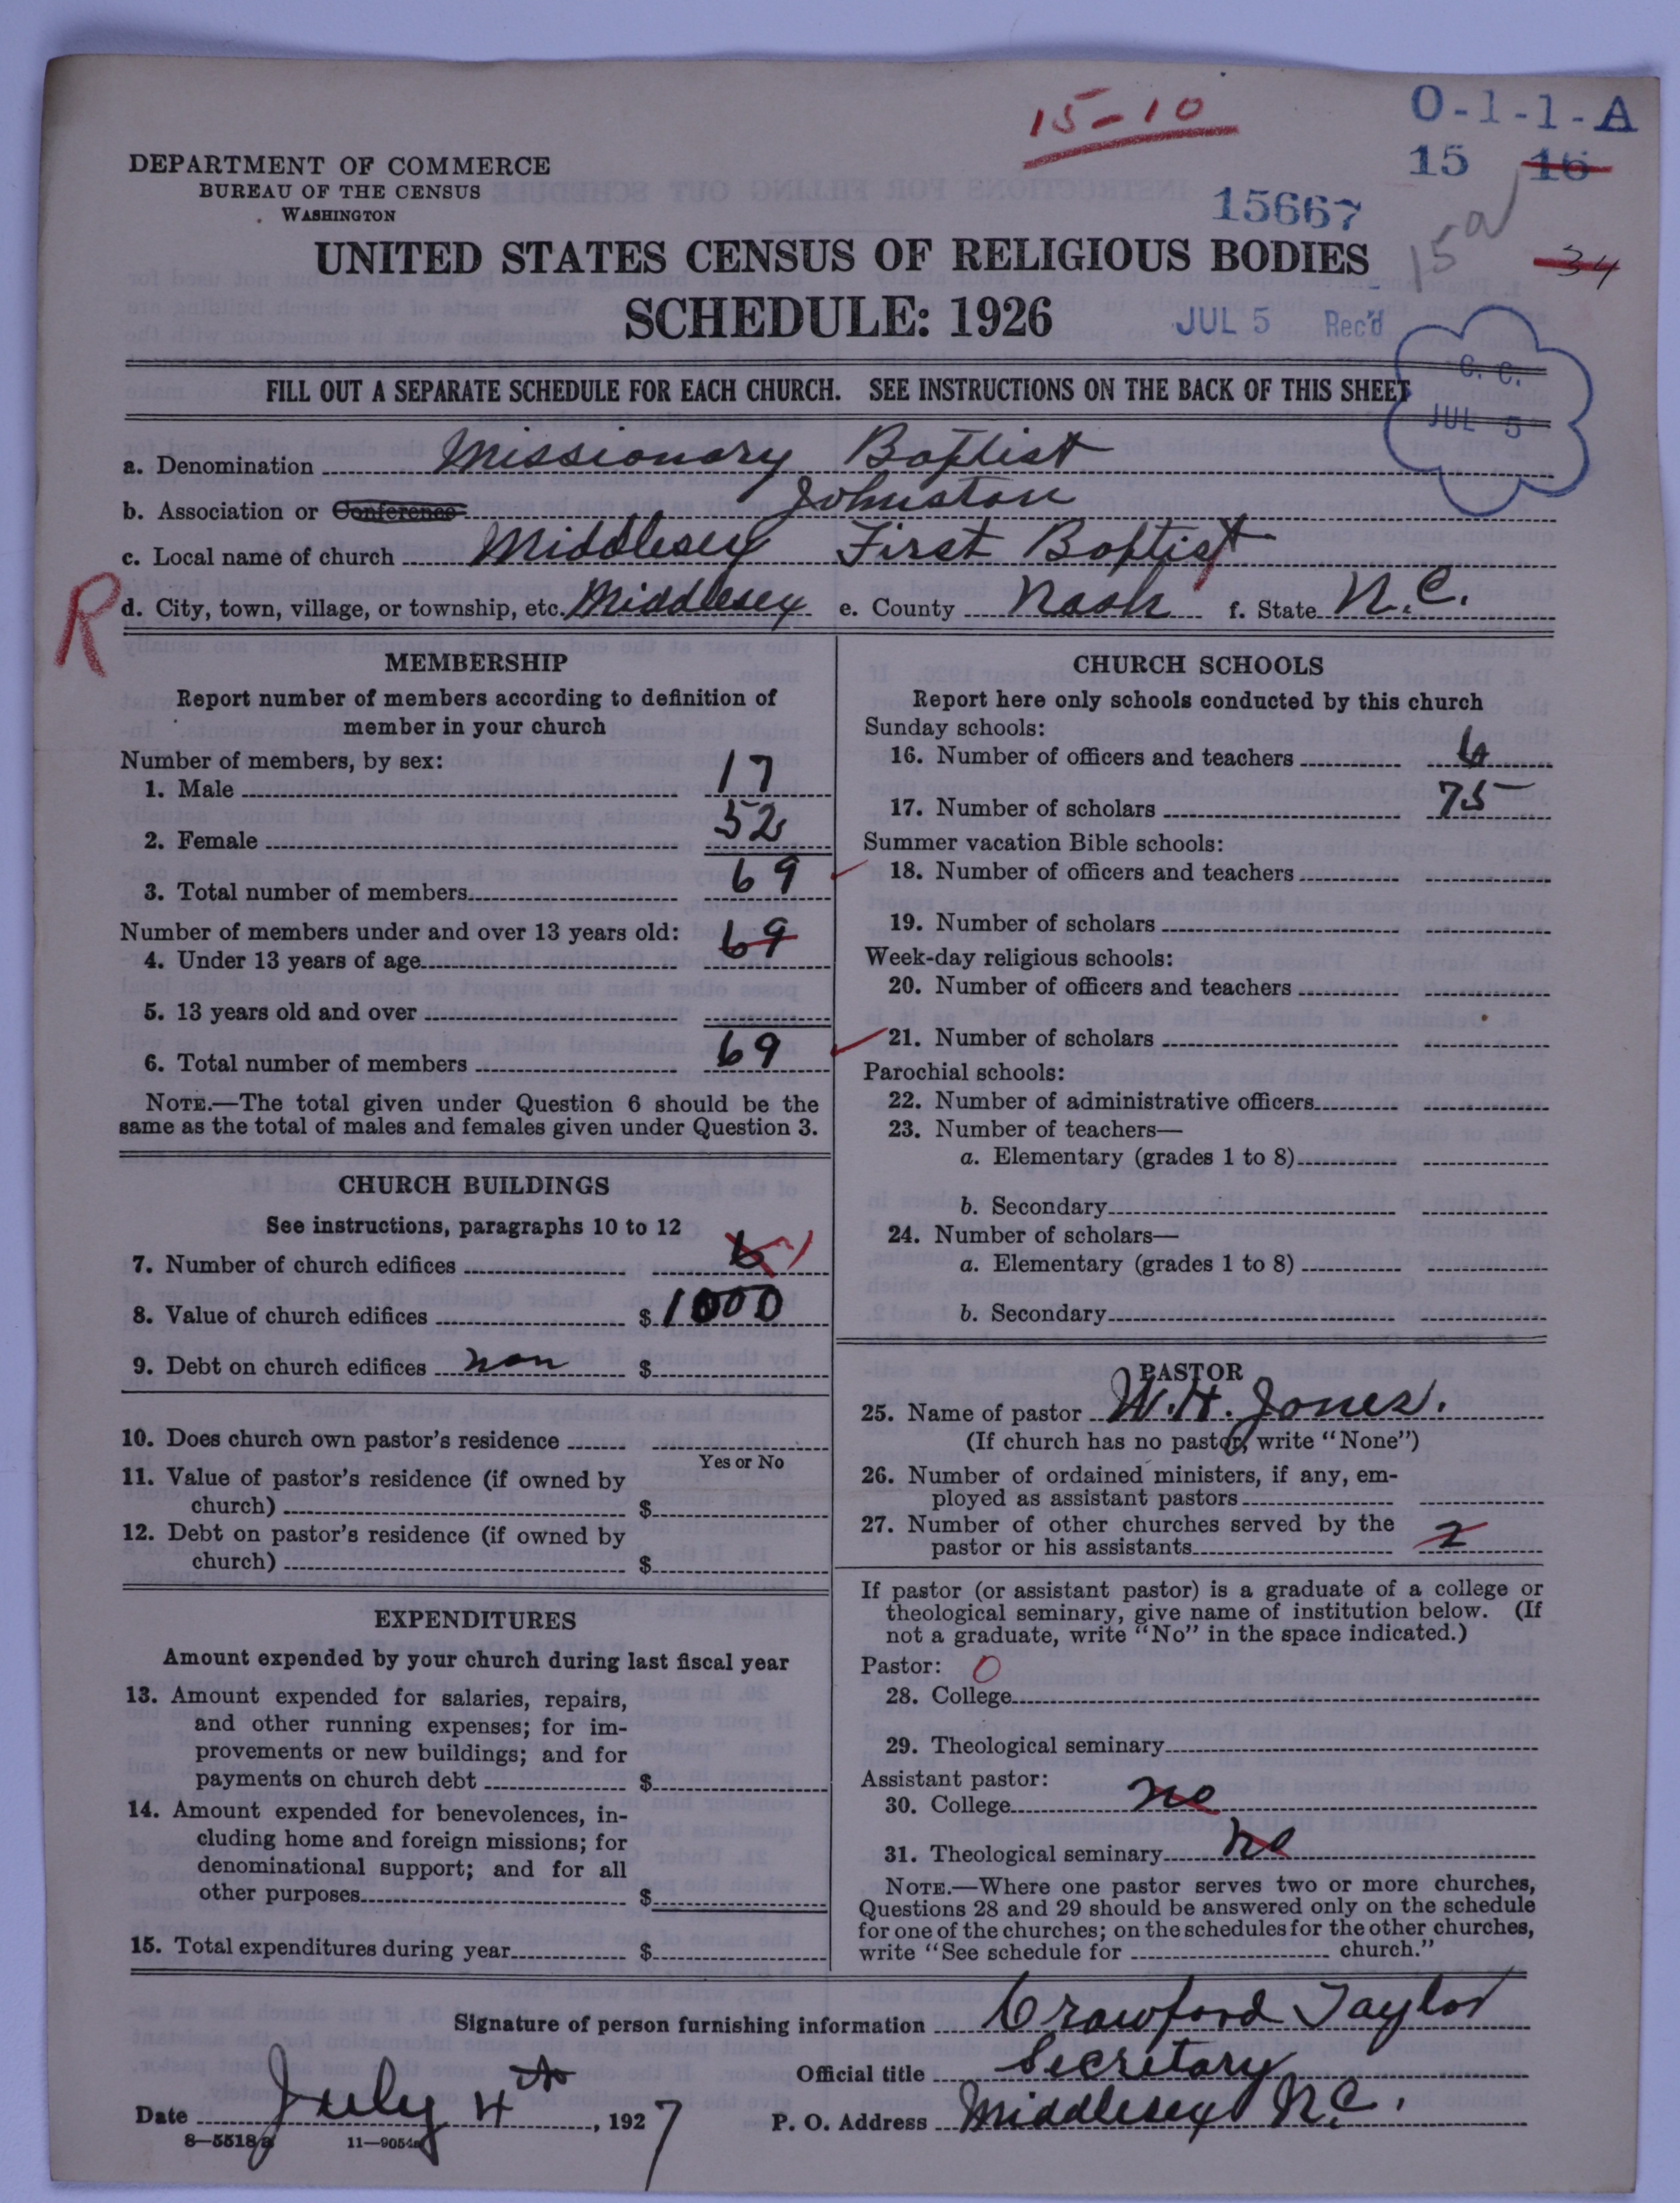 15-10
O-1-1-A
15 16
DEPARTMENT OF COMMERCE
BUREAU OF THE CENSUS
WASHINGTON
15667
15a
34
UNITED STATES CENSUS OF RELIGIOUS BODIES
SCHEDULE: 1926
JUL 5 Rec'd
C. C.
JUL 5
FILL OUT A SEPARATE SCHEDULE FOR EACH CHURCH. SEE INSTRUCTIONS ON THE BACK OF THIS SHEET
a. Denomination Missionary Baptist
b. Association or Conference Johnston
c. Local name of church Middlesex First Baptist
R
d. City, town, village, or township, etc. Middlesex e. County Nash f. State N.C.
MEMBERSHIP
Report number of members according to definition of
member in your church
Number of members, by sex:
1. Male 17
2. Female 52
3. Total number of members 69
Number of members under and over 13 years old: 69
4. Under 13 years of age
5. 13 years old and over
6. Total number of members 69
NOTE.—The total given under Question 6 should be the
same as the total of males and females given under Question 3.
CHURCH BUILDINGS
See instructions, paragraphs 10 to 12
7. Number of church edifices 6 1
8. Value of church edifices $ 1000
9. Debt on church edifices non $
10. Does church own pastor's residence
Yes or No
11. Value of pastor's residence (if owned by
church) $
12. Debt on pastor's residence (if owned by
church) $
EXPENDITURES
Amount expended by your church during last fiscal year
13. Amount expended for salaries, repairs,
and other running expenses; for im-
provements or new buildings; and for
payments on church debt $
14. Amount expended for benevolences, in-
cluding home and foreign missions; for
denominational support; and for all
other purposes $
15. Total expenditures during year $
CHURCH SCHOOLS
Report here only schools conducted by this church
Sunday schools:
16. Number of officers and teachers 6
17. Number of scholars 75
Summer vacation Bible schools:
18. Number of officers and teachers
19. Number of scholars
Week-day religious schools:
20. Number of officers and teachers
21. Number of scholars
Parochial schools:
22. Number of administrative officers
23. Number of teachers—
a. Elementary (grades 1 to 8)
b. Secondary
24. Number of scholars—
a. Elementary (grades 1 to 8)
b. Secondary
PASTOR
25. Name of pastor W. H. Jones.
(If church has no pastor, write "None")
26. Number of ordained ministers, if any, em-
ployed as assistant pastors
27. Number of other churches served by the
pastor or his assistants 2
If pastor (or assistant pastor) is a graduate of a college or
theological seminary, give name of institution below. (If
not a graduate, write "No" in the space indicated.)
Pastor: 0
28. College
29. Theological seminary
Assistant pastor:
30. College no
31. Theological seminary no
NOTE.—Where one pastor serves two or more churches,
Questions 28 and 29 should be answered only on the schedule
for one of the churches; on the schedules for the other churches,
write "See schedule for church."
Signature of person furnishing information Crawford Taylor
Official title Secretary
Date July 4th, 1927 P. O. Address Middlesex N.C.
8—5518a 11—9054a